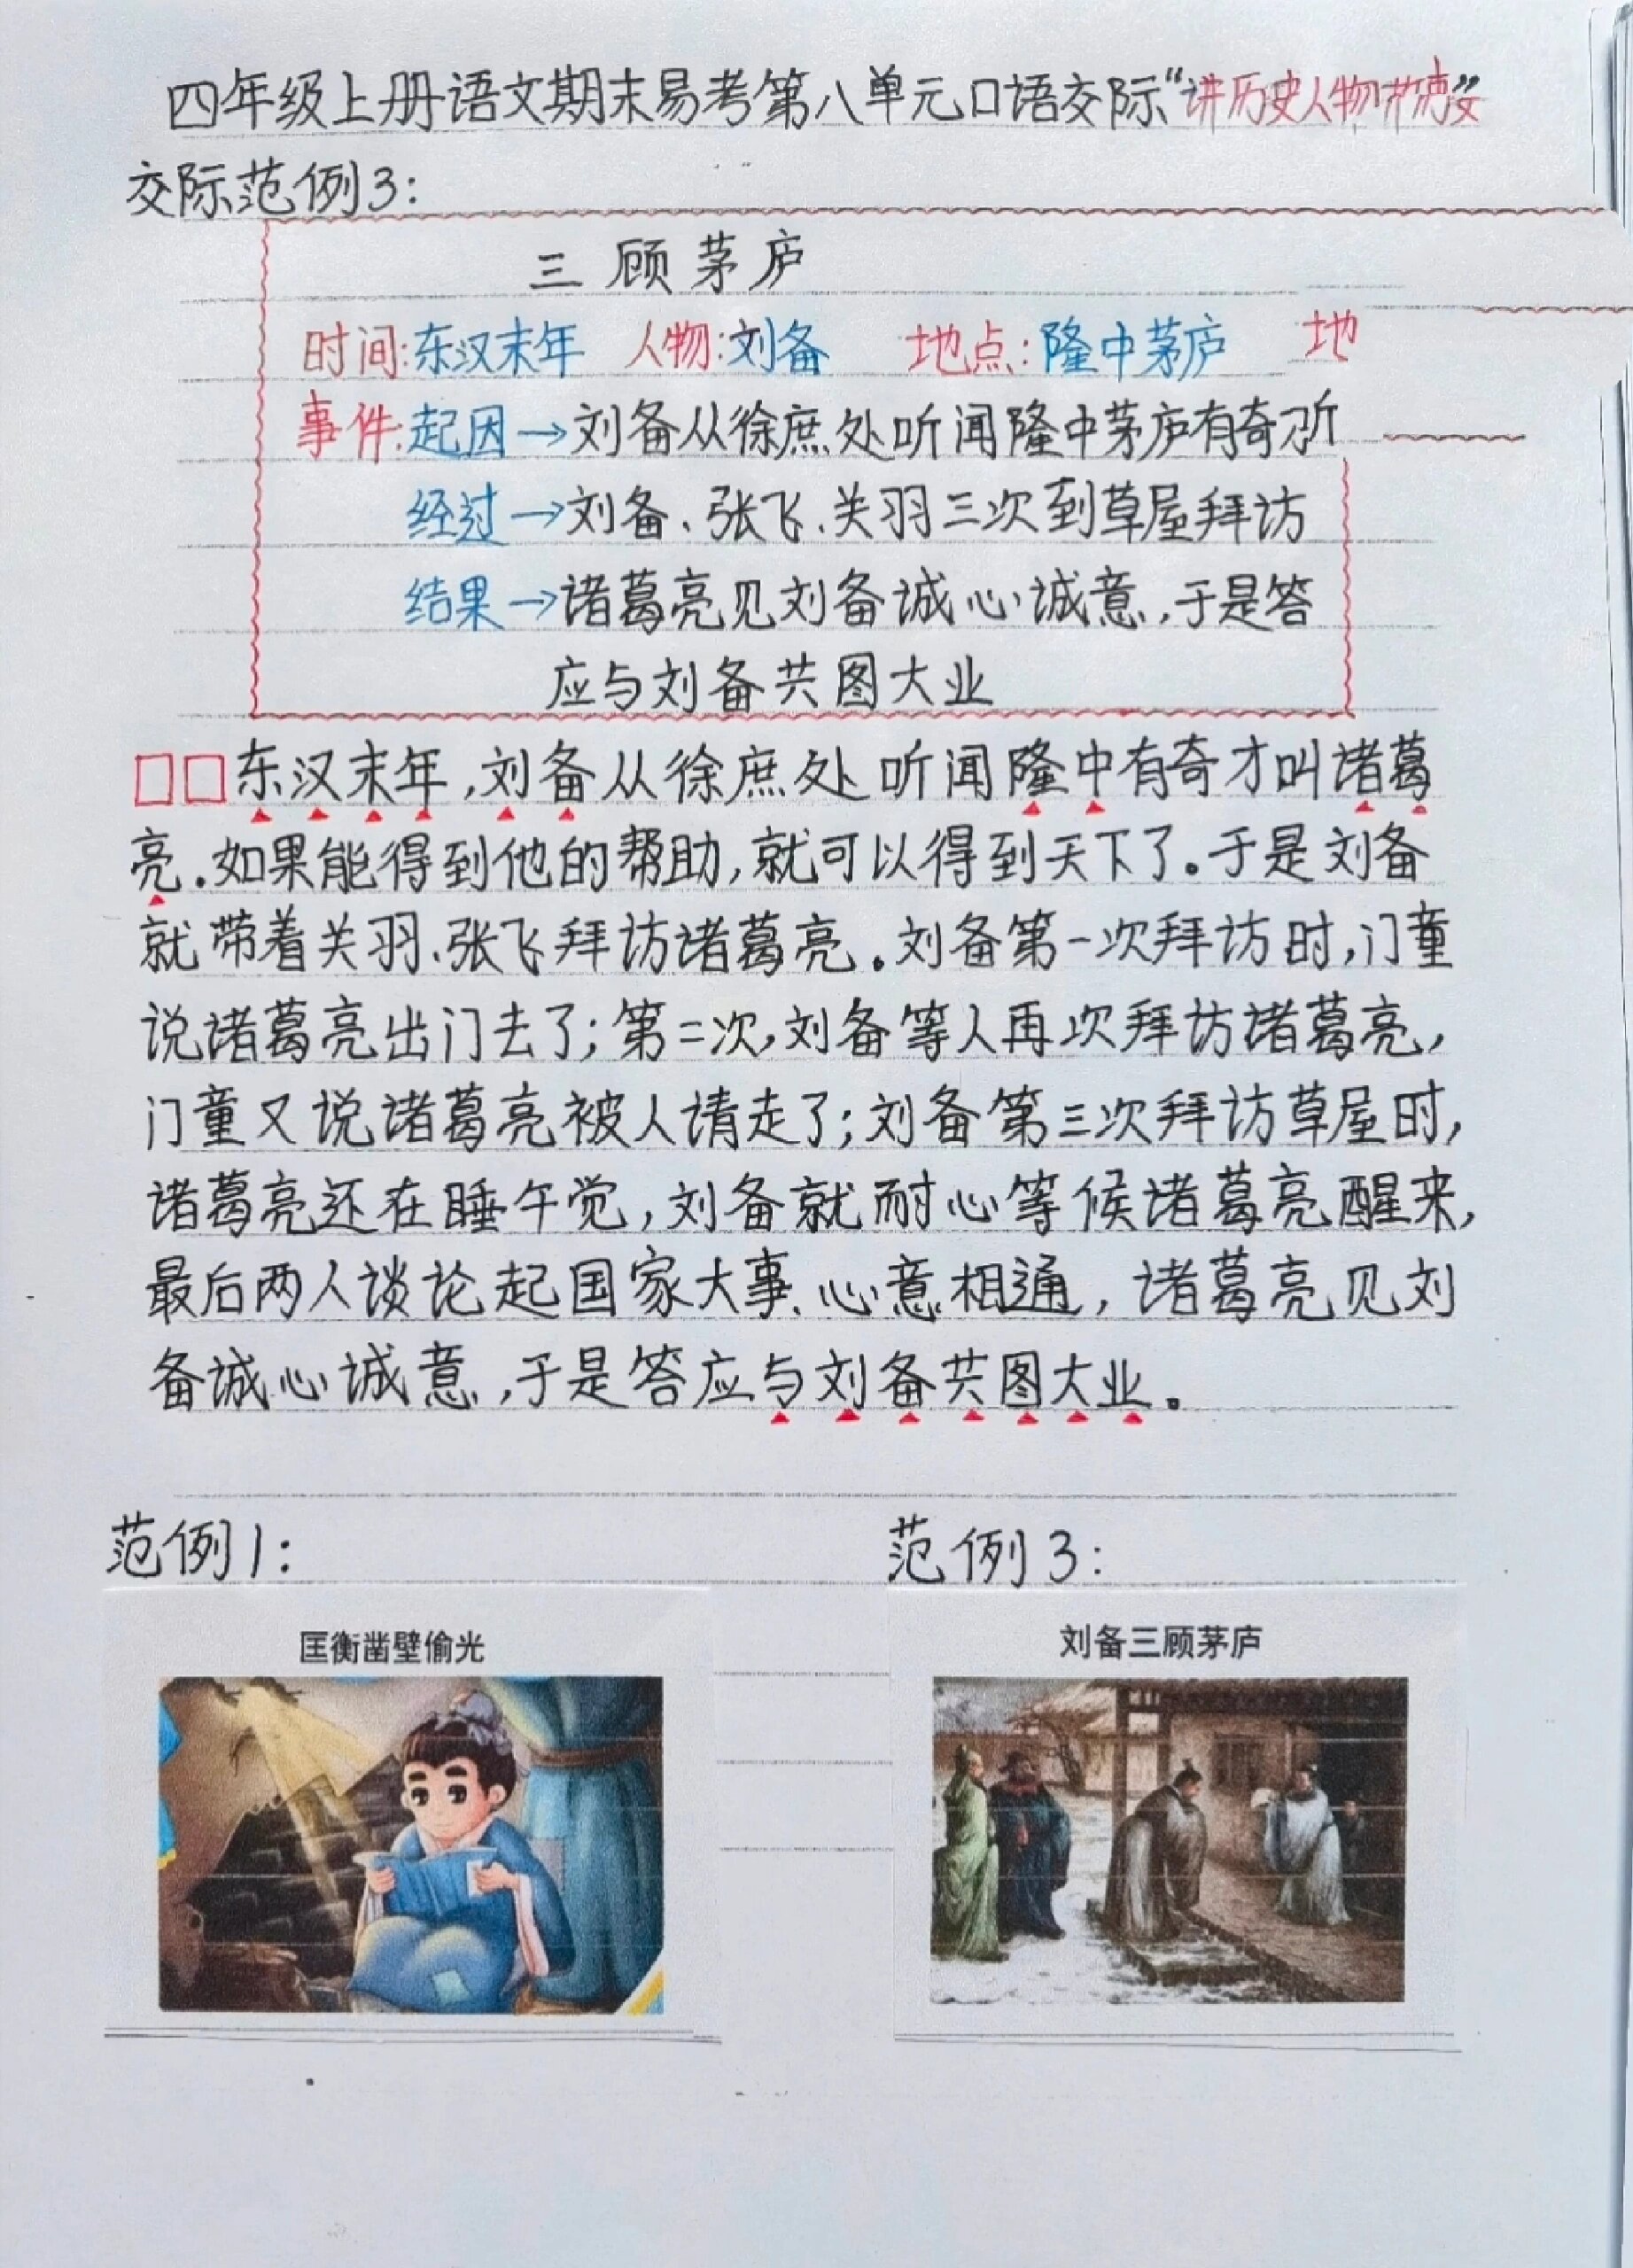 四年级上册语文期末易考第八单元口语交际“讲历史人物
交际范例3:
三顾茅庐
时间:东汉末年 人物:刘备 地点:隆中茅庐 地
事件:起因→刘备从徐庶处听闻隆中茅庐有奇
经过→刘备、张飞、关羽三次到草屋拜访
结果→诸葛亮见刘备诚心诚意,于是答
应与刘备共图大业
□□东汉末年,刘备从徐庶处听闻隆中有奇才叫诸葛
亮.如果能得到他的帮助,就可以得到天下了。于是刘备
就带着关羽、张飞拜访诸葛亮。刘备第一次拜访时,门童
说诸葛亮出门去了;第二次,刘备等人再次拜访诸葛亮,
门童又说诸葛亮被人请走了;刘备第三次拜访草屋时,
诸葛亮还在睡午觉,刘备就耐心等候诸葛亮醒来,
最后两人谈论起国家大事、心意相通,诸葛亮见刘
备诚心诚意,于是答应与刘备共图大业。
范例1: 范例3:
匡衡凿壁偷光 刘备三顾茅庐